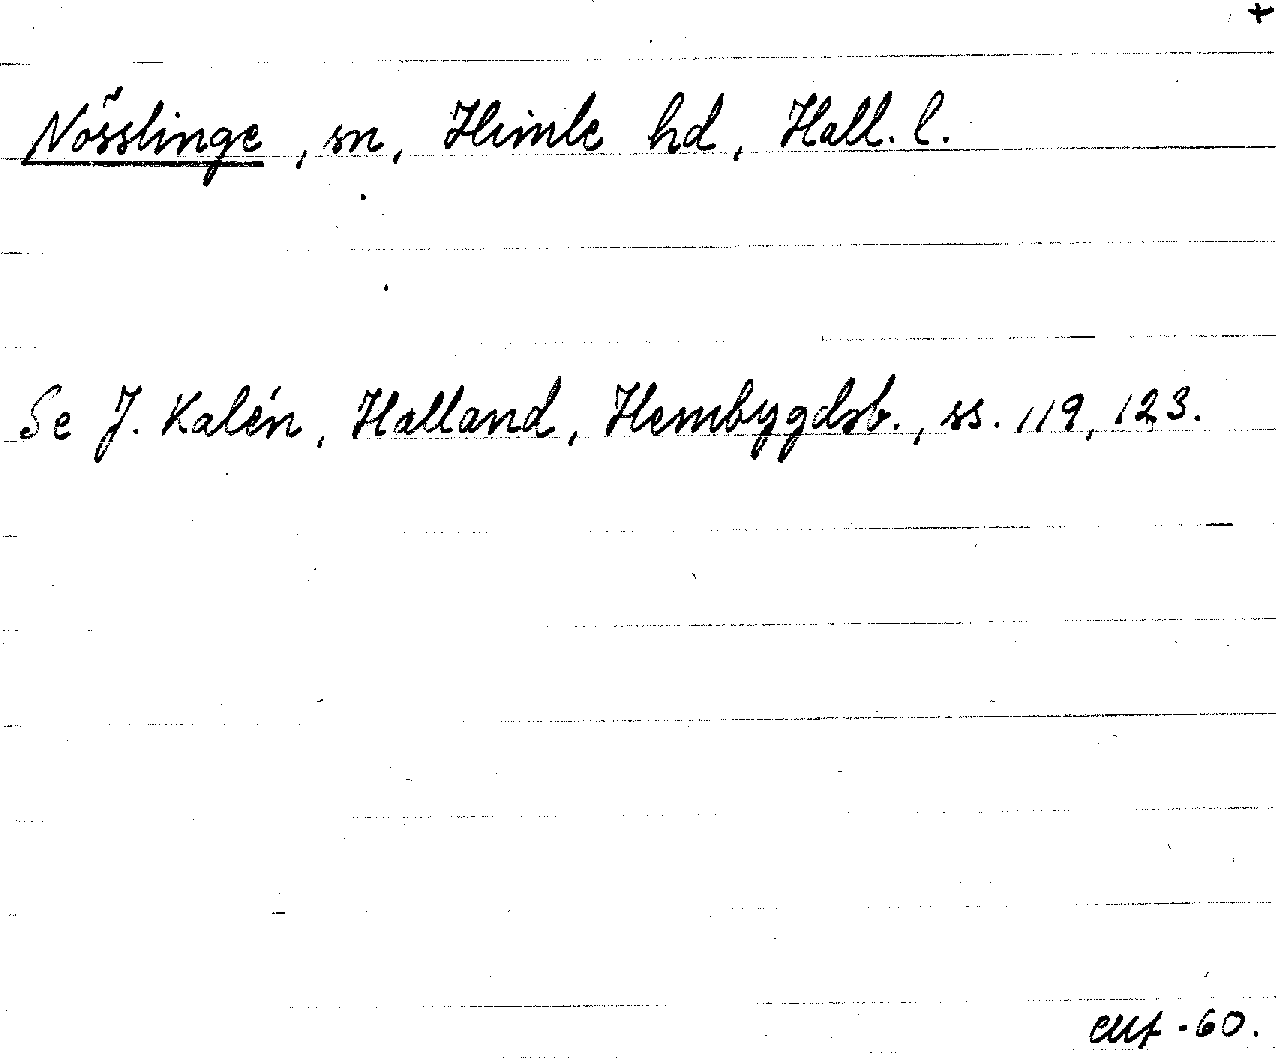 +
Nösslinge, sn, Himle hd, Hall. l.
Se J. Kalén, Halland, Hembygdsb., ss. 119, 123.
-60.